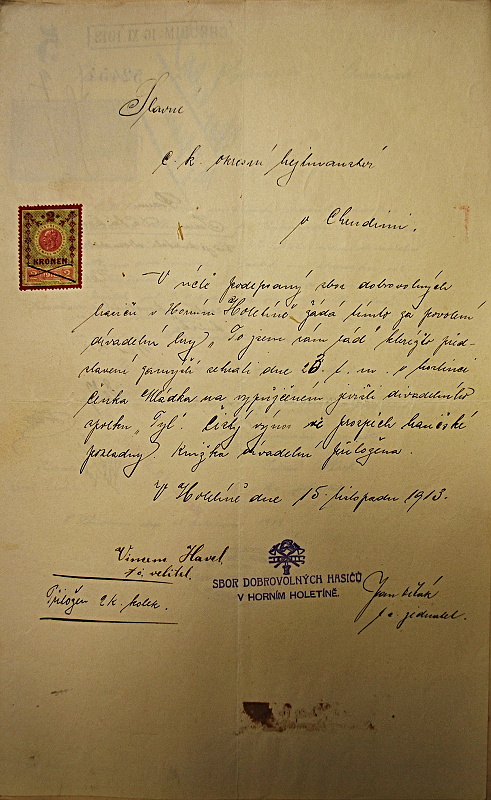 Slavné
c. k. okresní hejtmanství
v Chrudimi.
2
KRONEN
V úctě podepsaný sbor dobrovolných
hasičů v Horním Holetíně žádá tímto za povolení
divadelní hry „To jsem rád" kterýžto před-
stavení zamýšlí sehrati dne 23. t. m. v hostinci
Čeňka Mládka na vypůjčeném jevišti divadelního
spolku „Tyl". Čistý výnos ve prospěch hasičské
pokladny. Knížka divadelní přiložena.
V Holetíně dne 15. listopadu 1913.
Havel
t. č. velitel.
Přiložen 2 k. kolek.
SBOR DOBROVOLNÝCH HASIČŮ
V HORNÍM HOLETÍNĚ.
Jan
t. č. jednatel.